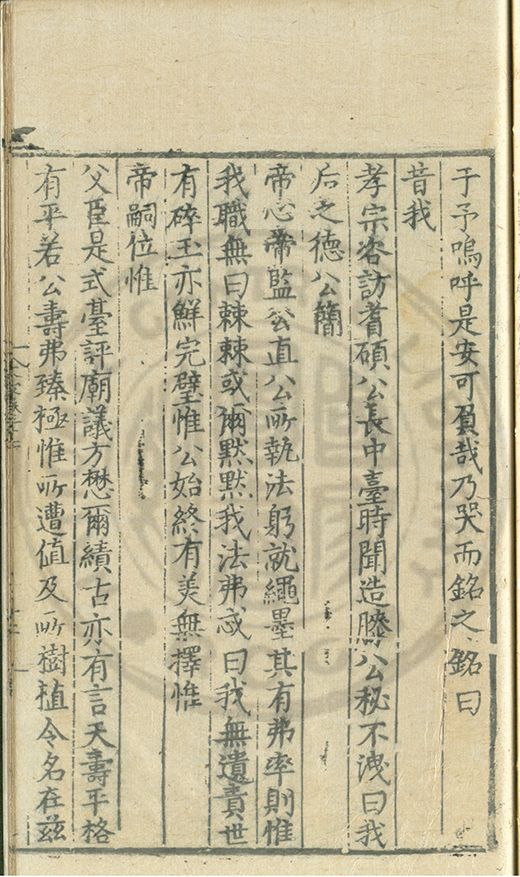 于予嗚呼是安可負哉乃哭而銘之銘曰
昔我
孝宗咨訪耆碩公長中臺時聞造膝公秘不洩曰我
后之德公簡
帝心帝監公直公所執法躬就繩墨其有弗率則惟
我職無曰棘棘或爾默默我法弗忒曰我無遺責世
有碎玉亦鮮完璧惟公始終有美無擇惟
帝嗣位惟
父臣是式臺評廟議方懋爾績古亦有言天壽平格
有平若公壽弗臻極惟所遭值及所樹植令名在兹